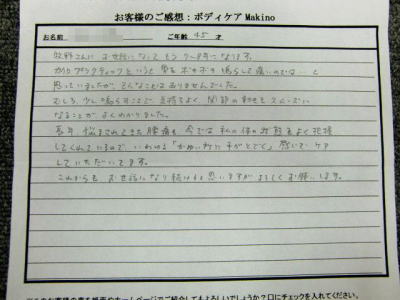 お客様のご感想：ボディケア Makino
お名前 ご年齢 45 才
牧野さんに お世話になって もう 年になります。
カイロプラクティックというと 骨を ボキボキ 鳴らして 痛いのでは…と
思っていましたが、そんなことは ありませんでした。
むしろ、少し鳴らすことで 気持ちよく 関節の動きも スムーズに
なることが よくわかりました。
長年 悩まされてきた 腰痛も 今では 私の体の状態をよく把握
してくれているので、いわゆる「かゆい所に手がとどく」感じで ケア
していただいてます。
これからも お世話になり続けると思いますが よろしくお願いします。
このお客様の声を紙面やホームページでご紹介してもよろしいでしょうか？口にチェックを入れてください。